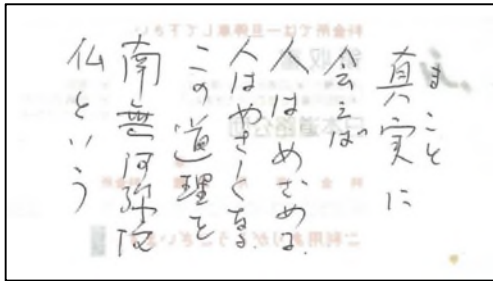 まこと
真実に
会えば
人はめざめる
人はやさしくなる
この道理を
南無阿弥陀
仏という